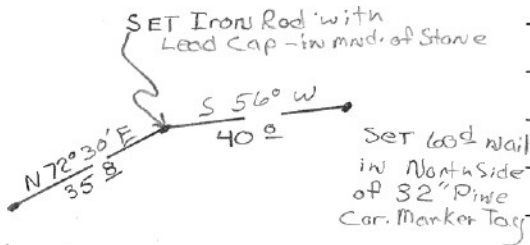 SET Iron Rod with
Lead Cap - in mnd. of Stone
S 56° W
40 º
N 72° 30' E
35 8
SET 60d Nail
in North Side
of 32" Pine
Cor. Marker Tag